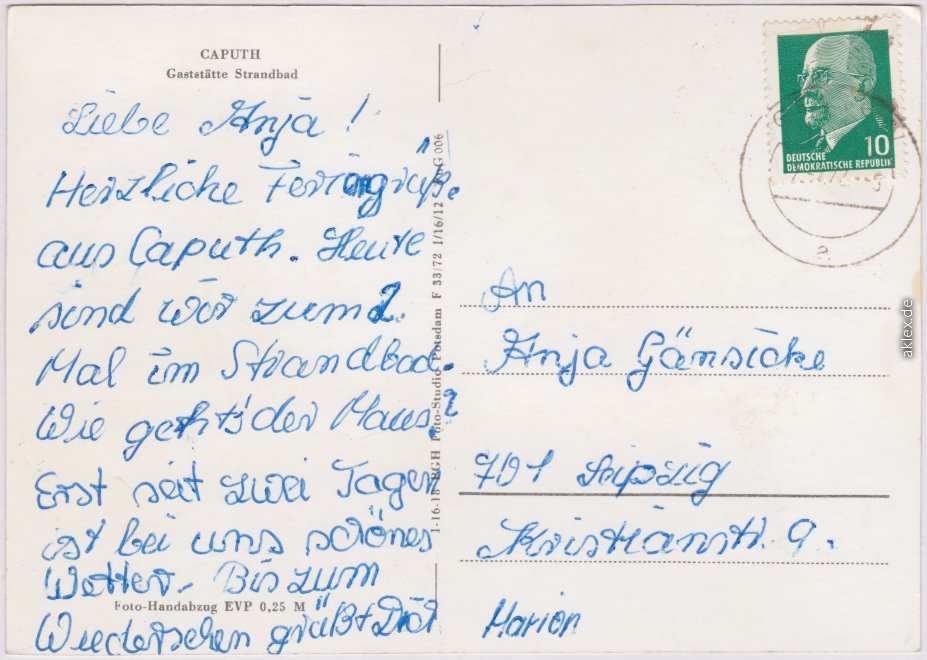 CAPUTH
Gaststätte Strandbad
Liebe Anja!
Herzliche Feriengrüße
aus Caputh. Heute
sind wir zum 2.
Mal im Strandbad.
Wie geht's der Maus?
Erst seit zwei Tagen
ist bei uns schönes
Wetter. Bis zum
Wiedersehen grüßt Dich
Marion
Foto-Handabzug EVP 0,25 M
I-16-18 HGH Foto-Studio Potsdam F 33/72 I/16/12 G 006
10
DEUTSCHE
DEMOKRATISCHE REPUBLIK
a
An
Anja Gänsicke
701 Leipzig
Kristianstr. 9.
aklex.de